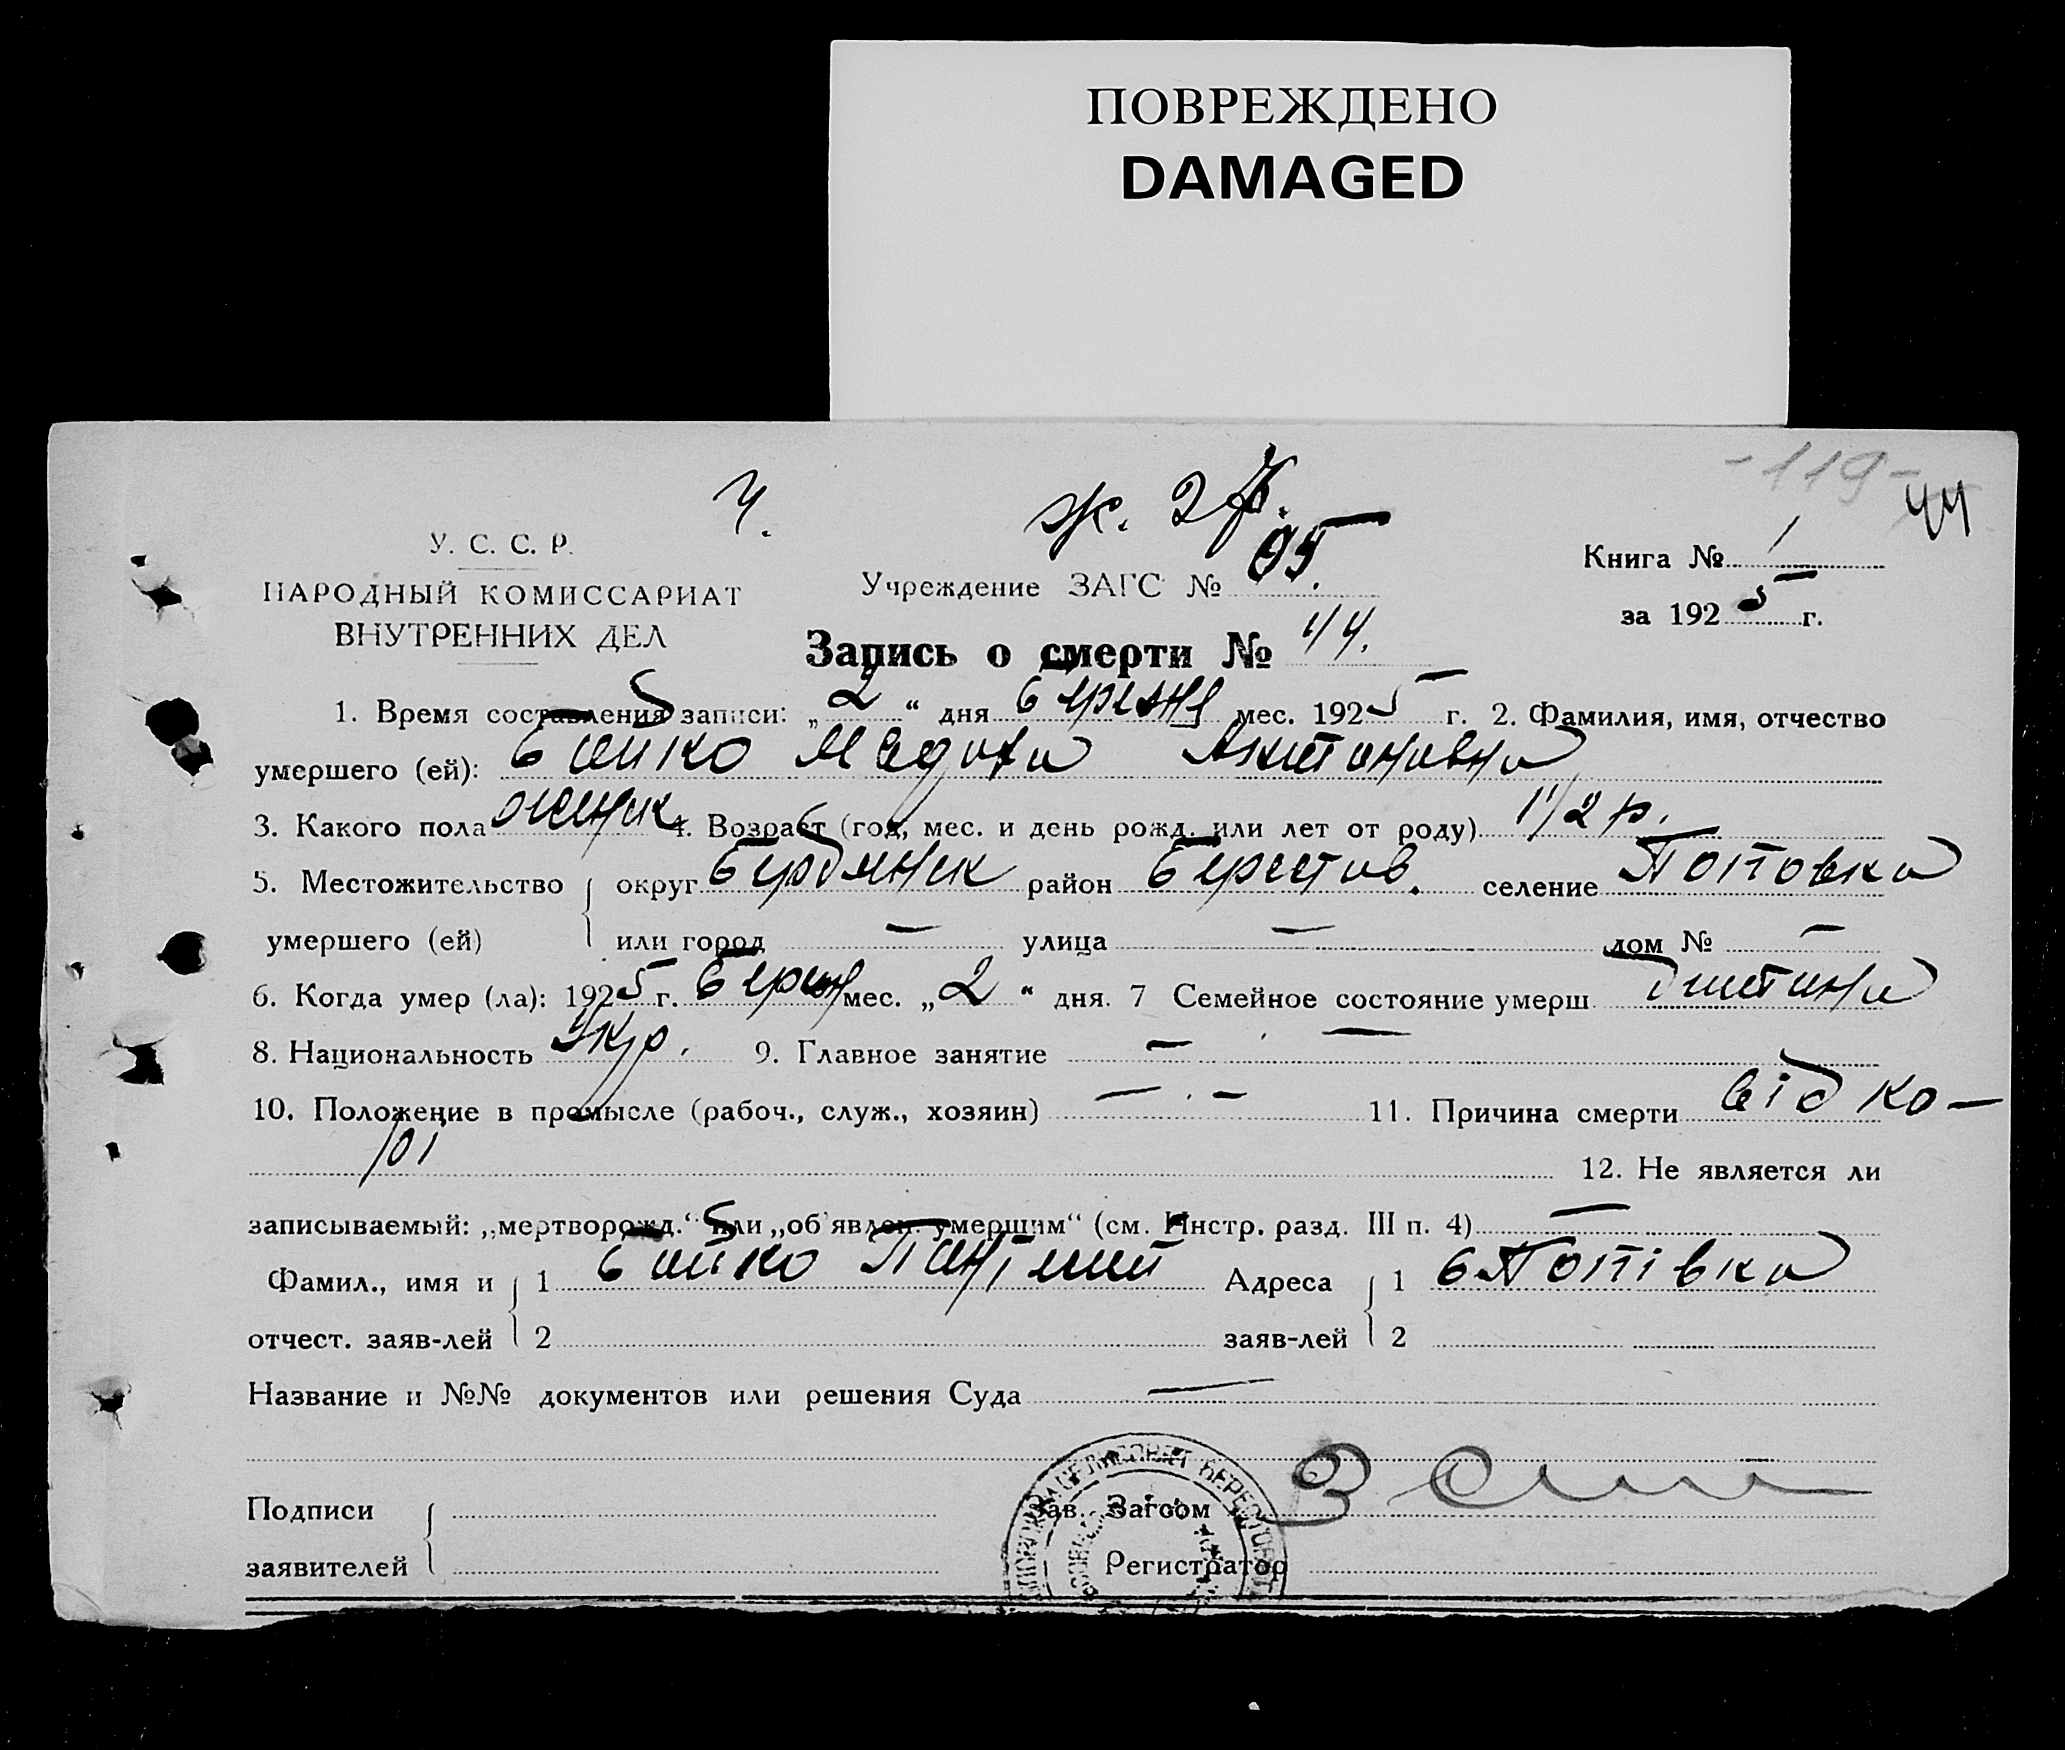 ПОВРЕЖДЕНО
DAMAGED
-119-
44
ч.
ж. 2
У. С. С. Р.
НАРОДНЫЙ КОМИССАРИАТ
ВНУТРЕННИХ ДЕЛ
Учреждение ЗАГС № 95.
Книга № 1
за 1925 г.
Запись о смерти № 14.
1. Время составления записи: „2“ дня березня мес. 1925 г. 2. Фамилия, имя, отчество
умершего (ей): Бойко Антоновна
3. Какого пола женск 4. Возраст (год, мес. и день рожд. или лет от роду) 1 1/2 р.
5. Местожительство округ Бердянск район Берестов. селение Поповка
умершего (ей) или город — улица — дом № —
6. Когда умер (ла): 1925 г. берез мес. „2“ дня. 7 Семейное состояние умерш. дитина
8. Национальность Укр. 9. Главное занятие — —
10. Положение в промысле (рабоч., служ., хозяин) — . — 11. Причина смерти від ко-
рі 12. Не является ли
записываемый: „мертворожд.“ или „об'явлен. умершим“ (см. Инстр. разд. III п. 4) —
Фамил., имя и 1 Бойко Адреса 1 с Попівка
отчест. заяв-лей 2 заяв-лей 2
Название и №№ документов или решения Суда —
Подписи Зав. Загсом
заявителей Регистратор